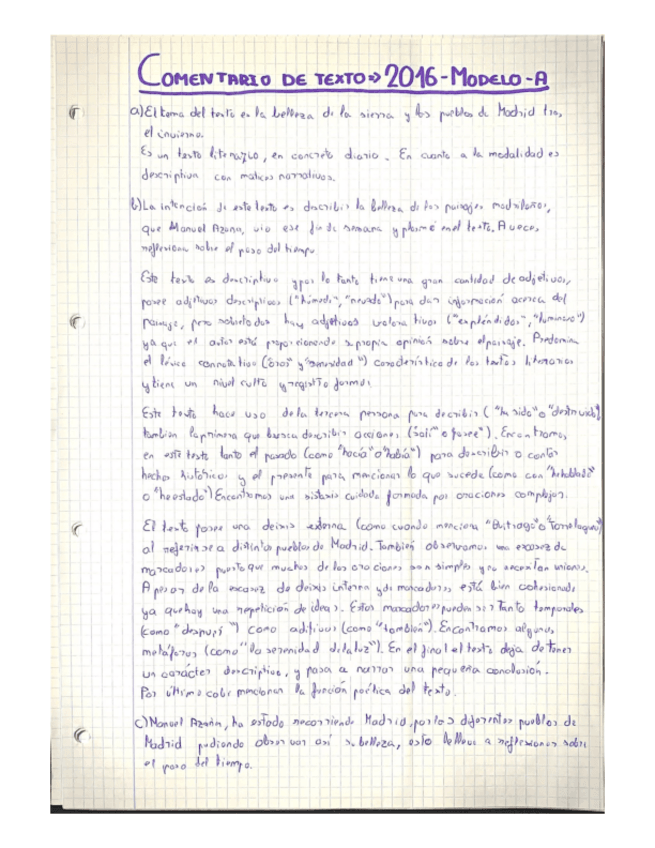 COMENTARIO DE TEXTO => 2016-MODELO-A
a) El tema del texto es la belleza de la sierra y los pueblos de Madrid tras
el invierno.
Es un texto literario, en concreto diario. En cuanto a la modalidad es
descriptivo con matices narrativos.
b) La intención de este texto es describir la belleza de los paisajes madrileños,
que Manuel Azaña, vio ese fin de semana y plasmó en el texto. A veces
reflexiona sobre el paso del tiempo
Este texto es descriptivo y por lo tanto tiene una gran cantidad de adjetivos,
posee adjetivos descriptivos ("húmedo", "nevado") para dar información acerca del
paisaje, pero sobretodos hay adjetivos valorativos ("espléndidos", "luminoso")
ya que el autor está proporcionando su propia opinión sobre el paisaje. Predomina
el léxico connotativo ( y "serenidad") característico de los textos literarios
y tiene un nivel culto y registro formal
Este texto hace uso de la tercera persona para describir ("ha sido" o "destruida")
también la primera que busca describir acciones ("salí" o "paseé"). Encontramos
en este texto tanto el pasado (como "hacía" o "había") para describir o contar
hechos históricos y el presente para mencionar lo que sucede (como con
o "he estado") Encontramos una sintaxis cuidada formada por oraciones complejas.
El texto posee una deixis externa (como cuando menciona "Buitrago" o "Torrelaguna")
al referirse a distintos pueblos de Madrid. También observamos una escasez de
marcadores puesto que muchas de las oraciones son simples y no necesitan unirse.
A pesar de la escasez de deixis interna y de marcadores, está bien cohesionado
ya que hay una repetición de ideas. Estos marcadores pueden ser tanto temporales
(como "después") como aditivos (como "también"). Encontramos algunas
metáforas (como "la serenidad de la luz"). En el final el texto deja de tener
un carácter descriptivo, y pasa a narrar una pequeña conclusión.
Por último cabe mencionar la función poética del texto.
c) Manuel Azaña, ha estado recorriendo Madrid, por los diferentes pueblos de
Madrid pudiendo observar así su belleza, esto le lleva a reflexionar sobre
el paso del tiempo.